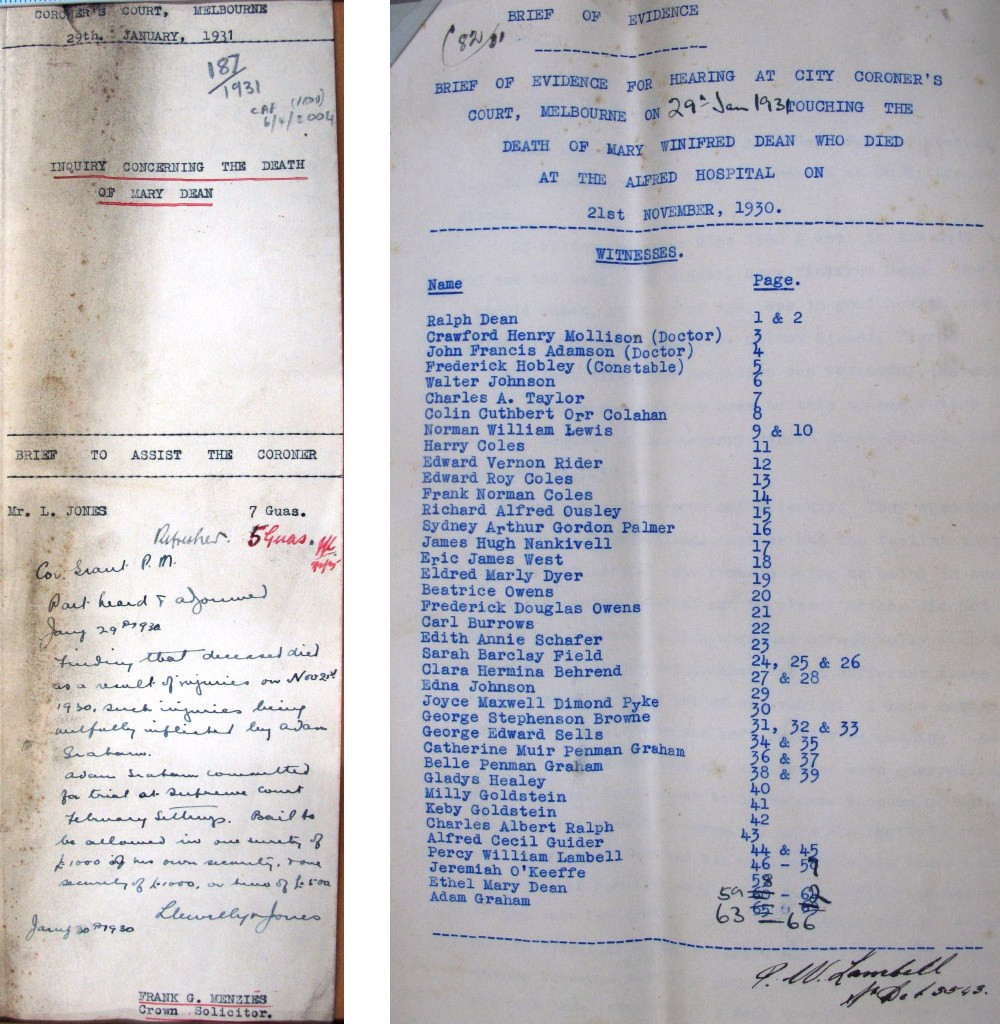 CORONER'S COURT, MELBOURNE
29th. JANUARY, 1931
187
1931
6/4/2004
INQUIRY CONCERNING THE DEATH
OF MARY DEAN
BRIEF TO ASSIST THE CORONER
Mr. L. JONES 7 Guas.
Refresher. 5 Guas.
Cor. Grant P.M.
Part heard & adjourned
Jany 29th 1930
Finding that deceased died
as a result of injuries on Nov 21st
1930, such injuries being
wilfully inflicted by Adam
Graham.
Adam Graham committed
for trial at Supreme Court
February Sittings. Bail to
be allowed in one surety of
£1000 his own security, & one
security of £1000, or two of £500
Llewellyn Jones
Jany 30th 1930
FRANK G. MENZIES
Crown Solicitor.
BRIEF OF EVIDENCE
BRIEF OF EVIDENCE FOR HEARING AT CITY CORONER'S
COURT, MELBOURNE ON 29th Jan 1931 TOUCHING THE
DEATH OF MARY WINIFRED DEAN WHO DIED
AT THE ALFRED HOSPITAL ON
21st NOVEMBER, 1930.
WITNESSES.
Name Page.
Ralph Dean 1 & 2
Crawford Henry Mollison (Doctor) 3
John Francis Adamson (Doctor) 4
Frederick Hobley (Constable) 5
Walter Johnson 6
Charles A. Taylor 7
Colin Cuthbert Orr Colahan 8
Norman William Lewis 9 & 10
Harry Coles 11
Edward Vernon Rider 12
Edward Roy Coles 13
Frank Norman Coles 14
Richard Alfred Ousley 15
Sydney Arthur Gordon Palmer 16
James Hugh Nankivell 17
Eric James West 18
Eldred Marly Dyer 19
Beatrice Owens 20
Frederick Douglas Owens 21
Carl Burrows 22
Edith Annie Schafer 23
Sarah Barclay Field 24, 25 & 26
Clara Hermina Behrend 27 & 28
Edna Johnson 29
Joyce Maxwell Dimond Pyke 30
George Stephenson Browne 31, 32 & 33
George Edward Sells 34 & 35
Catherine Muir Penman Graham 36 & 37
Belle Penman Graham 38 & 39
Gladys Healey 40
Milly Goldstein 41
Keby Goldstein 42
Charles Albert Ralph 43
Alfred Cecil Guider 44 & 45
Percy William Lambell 46 -
Jeremiah O'Keeffe 58
Ethel Mary Dean 59 -
Adam Graham 63 - 66
P. W. Lambell